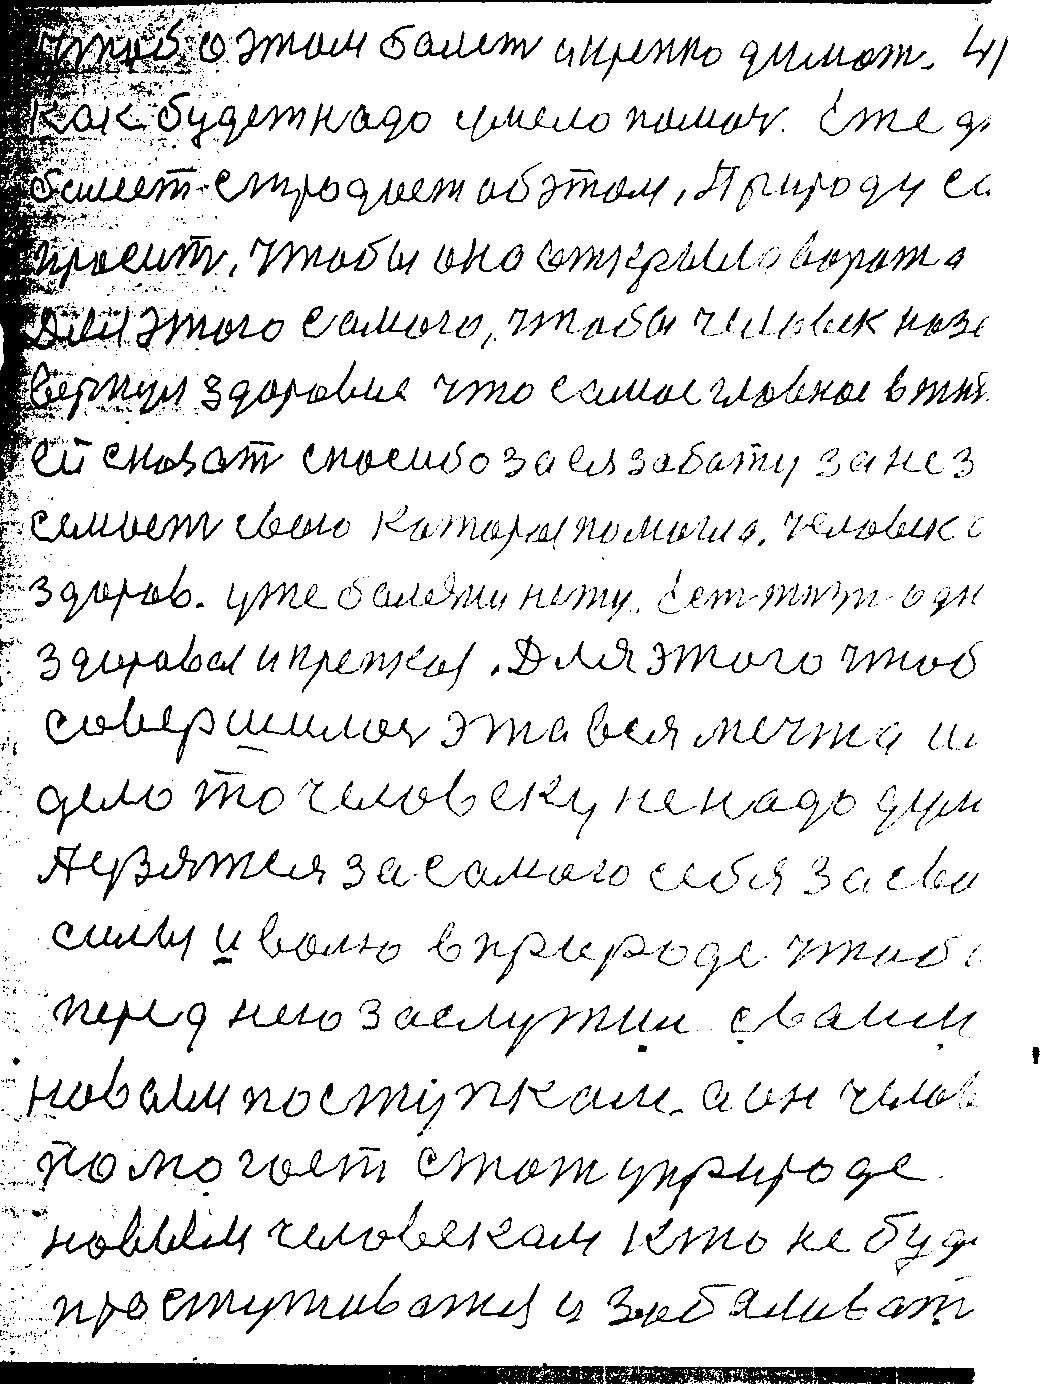 чтоб о этом балет и крепко думат. 41
как будет надо умело помоч. Еже
балеет страдает об этом, Природу
просит, чтобы она открыла ворота
Для этого самого, чтобы человек
вернул здоровие что самое главное в
ей сказат спосибо за ея заботу за
семает свою каторая помогла. человек
здоров. уже балезни нету. Ест жизн
здоровая и крепкая. Для этого чтоб
совершилас эта вся мечта и
дело то человеку не надо
А взятся за самого себя за
силы и волю в природе чтоб
перед нею заслужил сваим
новаим поступкам. а он
помогает стат у природе
новыем человекам кто не
простуживатся и забаливат